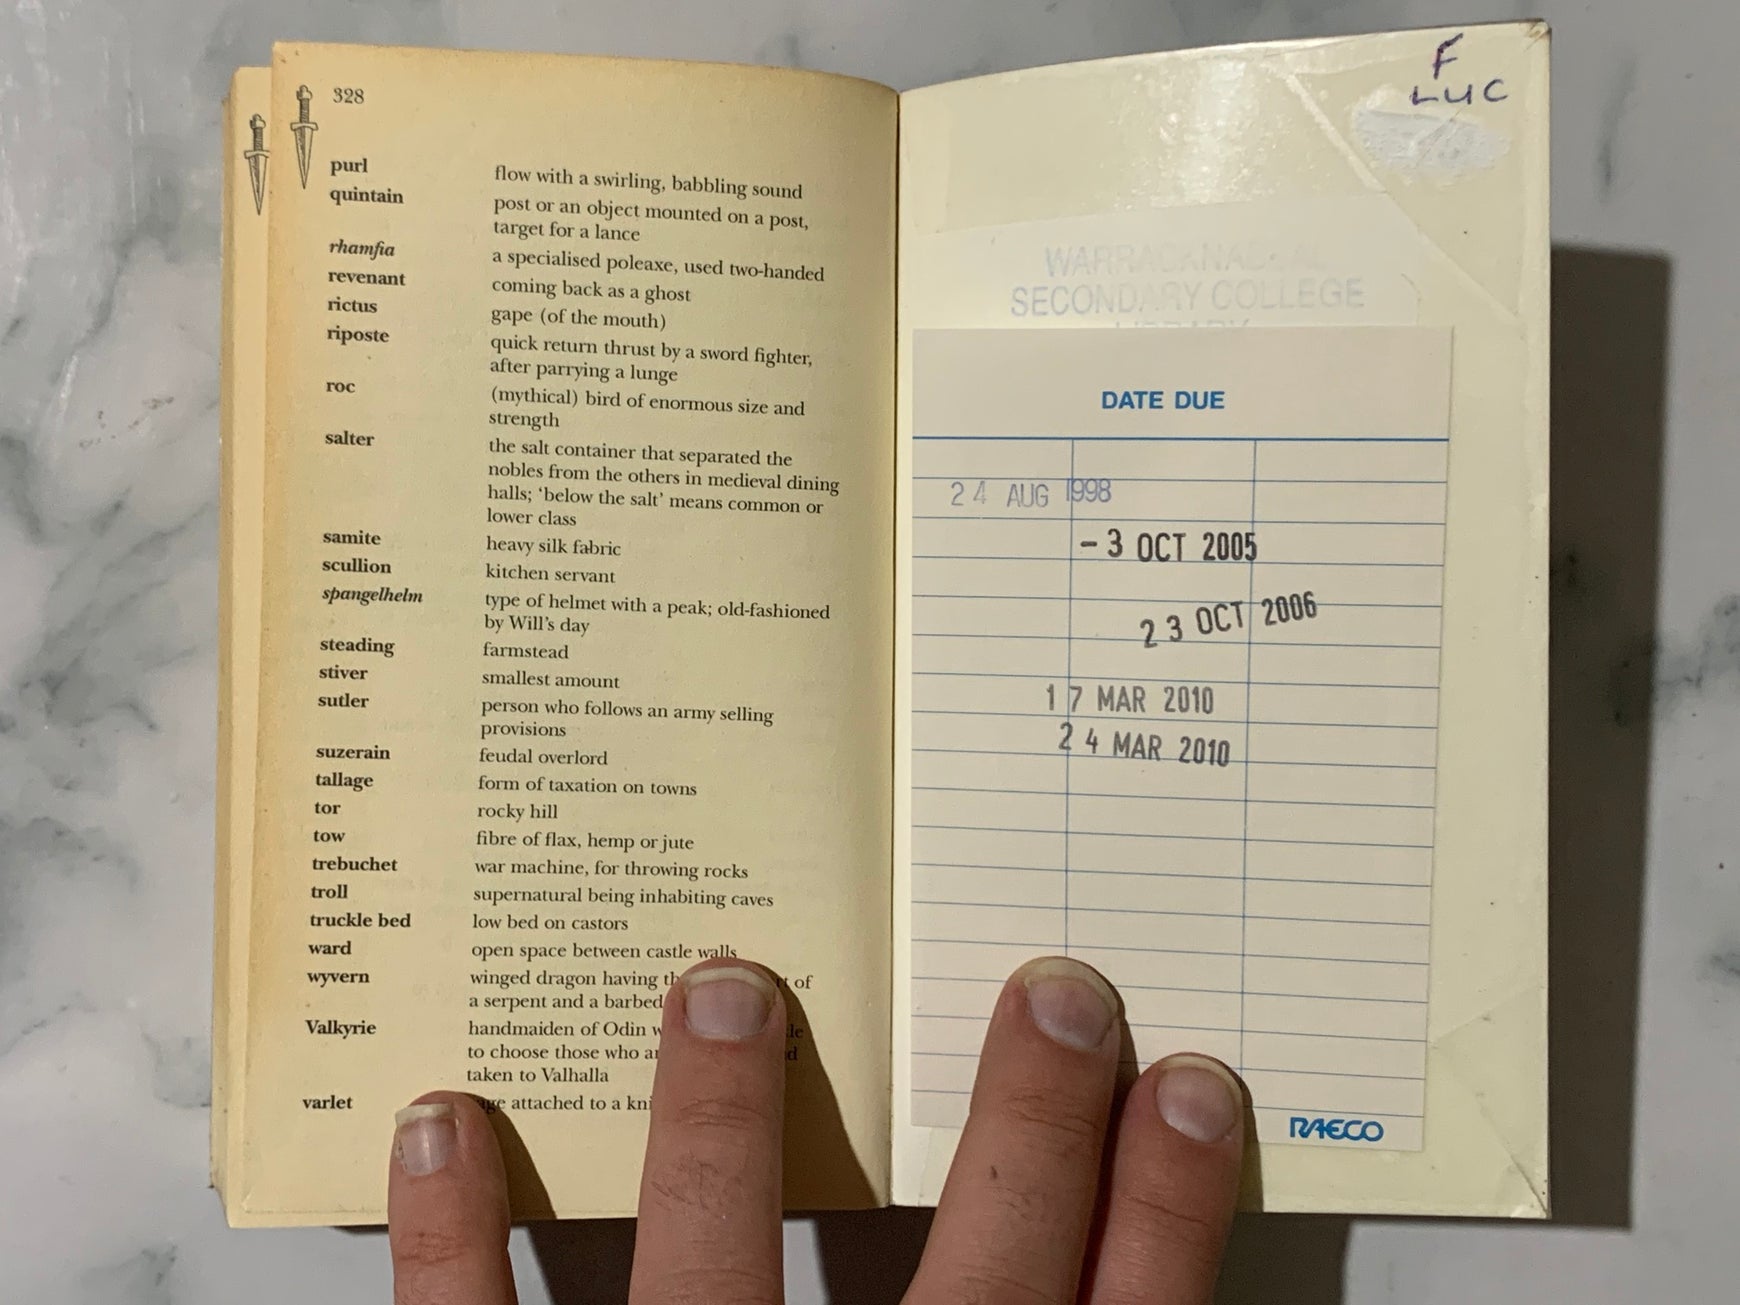 328
purl flow with a swirling, babbling sound
quintain post or an object mounted on a post,
target for a lance
rhamfia a specialised poleaxe, used two-handed
revenant coming back as a ghost
rictus gape (of the mouth)
riposte quick return thrust by a sword fighter,
after parrying a lunge
roc (mythical) bird of enormous size and
strength
salter the salt container that separated the
nobles from the others in medieval dining
halls; ‘below the salt’ means common or
lower class
samite heavy silk fabric
scullion kitchen servant
spangelhelm type of helmet with a peak; old-fashioned
by Will’s day
steading farmstead
stiver smallest amount
sutler person who follows an army selling
provisions
suzerain feudal overlord
tallage form of taxation on towns
tor rocky hill
tow fibre of flax, hemp or jute
trebuchet war machine, for throwing rocks
troll supernatural being inhabiting caves
truckle bed low bed on castors
ward open space between castle walls
wyvern winged dragon having of
a serpent and a barbed
Valkyrie handmaiden of Odin
to choose those who
taken to Valhalla
varlet attached to a
F
LUC
SECONDARY COLLEGE
LIBRARY
DATE DUE
24 AUG 1998
- 3 OCT 2005
23 OCT 2006
17 MAR 2010
24 MAR 2010
RAECO